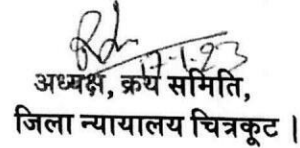 17-1-23
अध्यक्ष, क्रय समिति,
जिला न्यायालय चित्रकूट ।